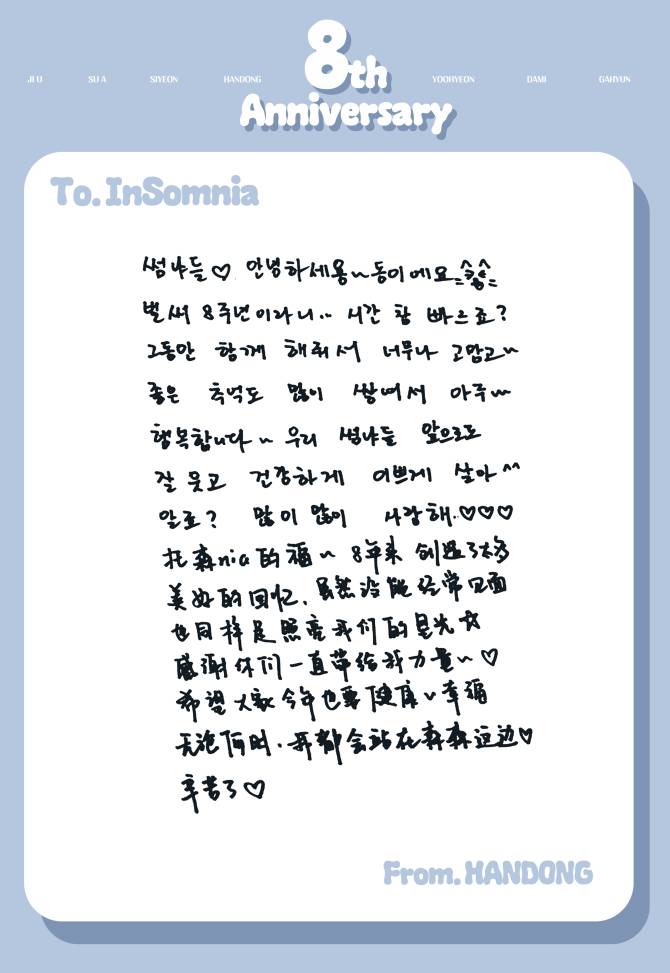 8th
Anniversary
JI U SU A SIYEON HANDONG YOOHYEON DAMI GAHYUN
To. InSomnia
썸냐들♡ 안녕하세용~동이에요^^
벌써 8주년이라니.. 시간 참 빠르죠?
그동안 함께 해줘서 너무나 고맙고~
좋은 추억도 많이 쌓여서 아주~
행복합니다~ 우리 썸냐들 앞으로도
잘 웃고 건강하게 이쁘게 살아^^
알죠? 많이 많이 사랑해.♡♡♡
托森nia的福~ 8年来 创造了太多
美好的回忆. 虽然没能经常见面
也同样是照亮我们的星光☆
感谢你们一直带给我力量~♡
希望大家今年也要健康~幸福
无论何时.我都会站在森森这边♡
辛苦了♡
From. HANDONG